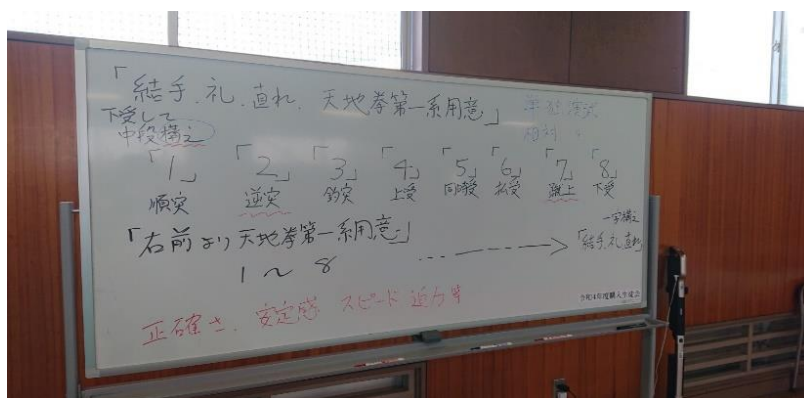 「結手、礼、直れ、天地拳第一系用意」
下受して
中段構え
「1」「2」「3」「4」「5」「6」「7」「8」
順突 逆突 鈎突 上受 内受 払受 蹴上 下受
「右前より天地拳第一系用意」
1～8
一字構え
「結手、礼、直れ」
正確さ、安定感 スピード 迫力等